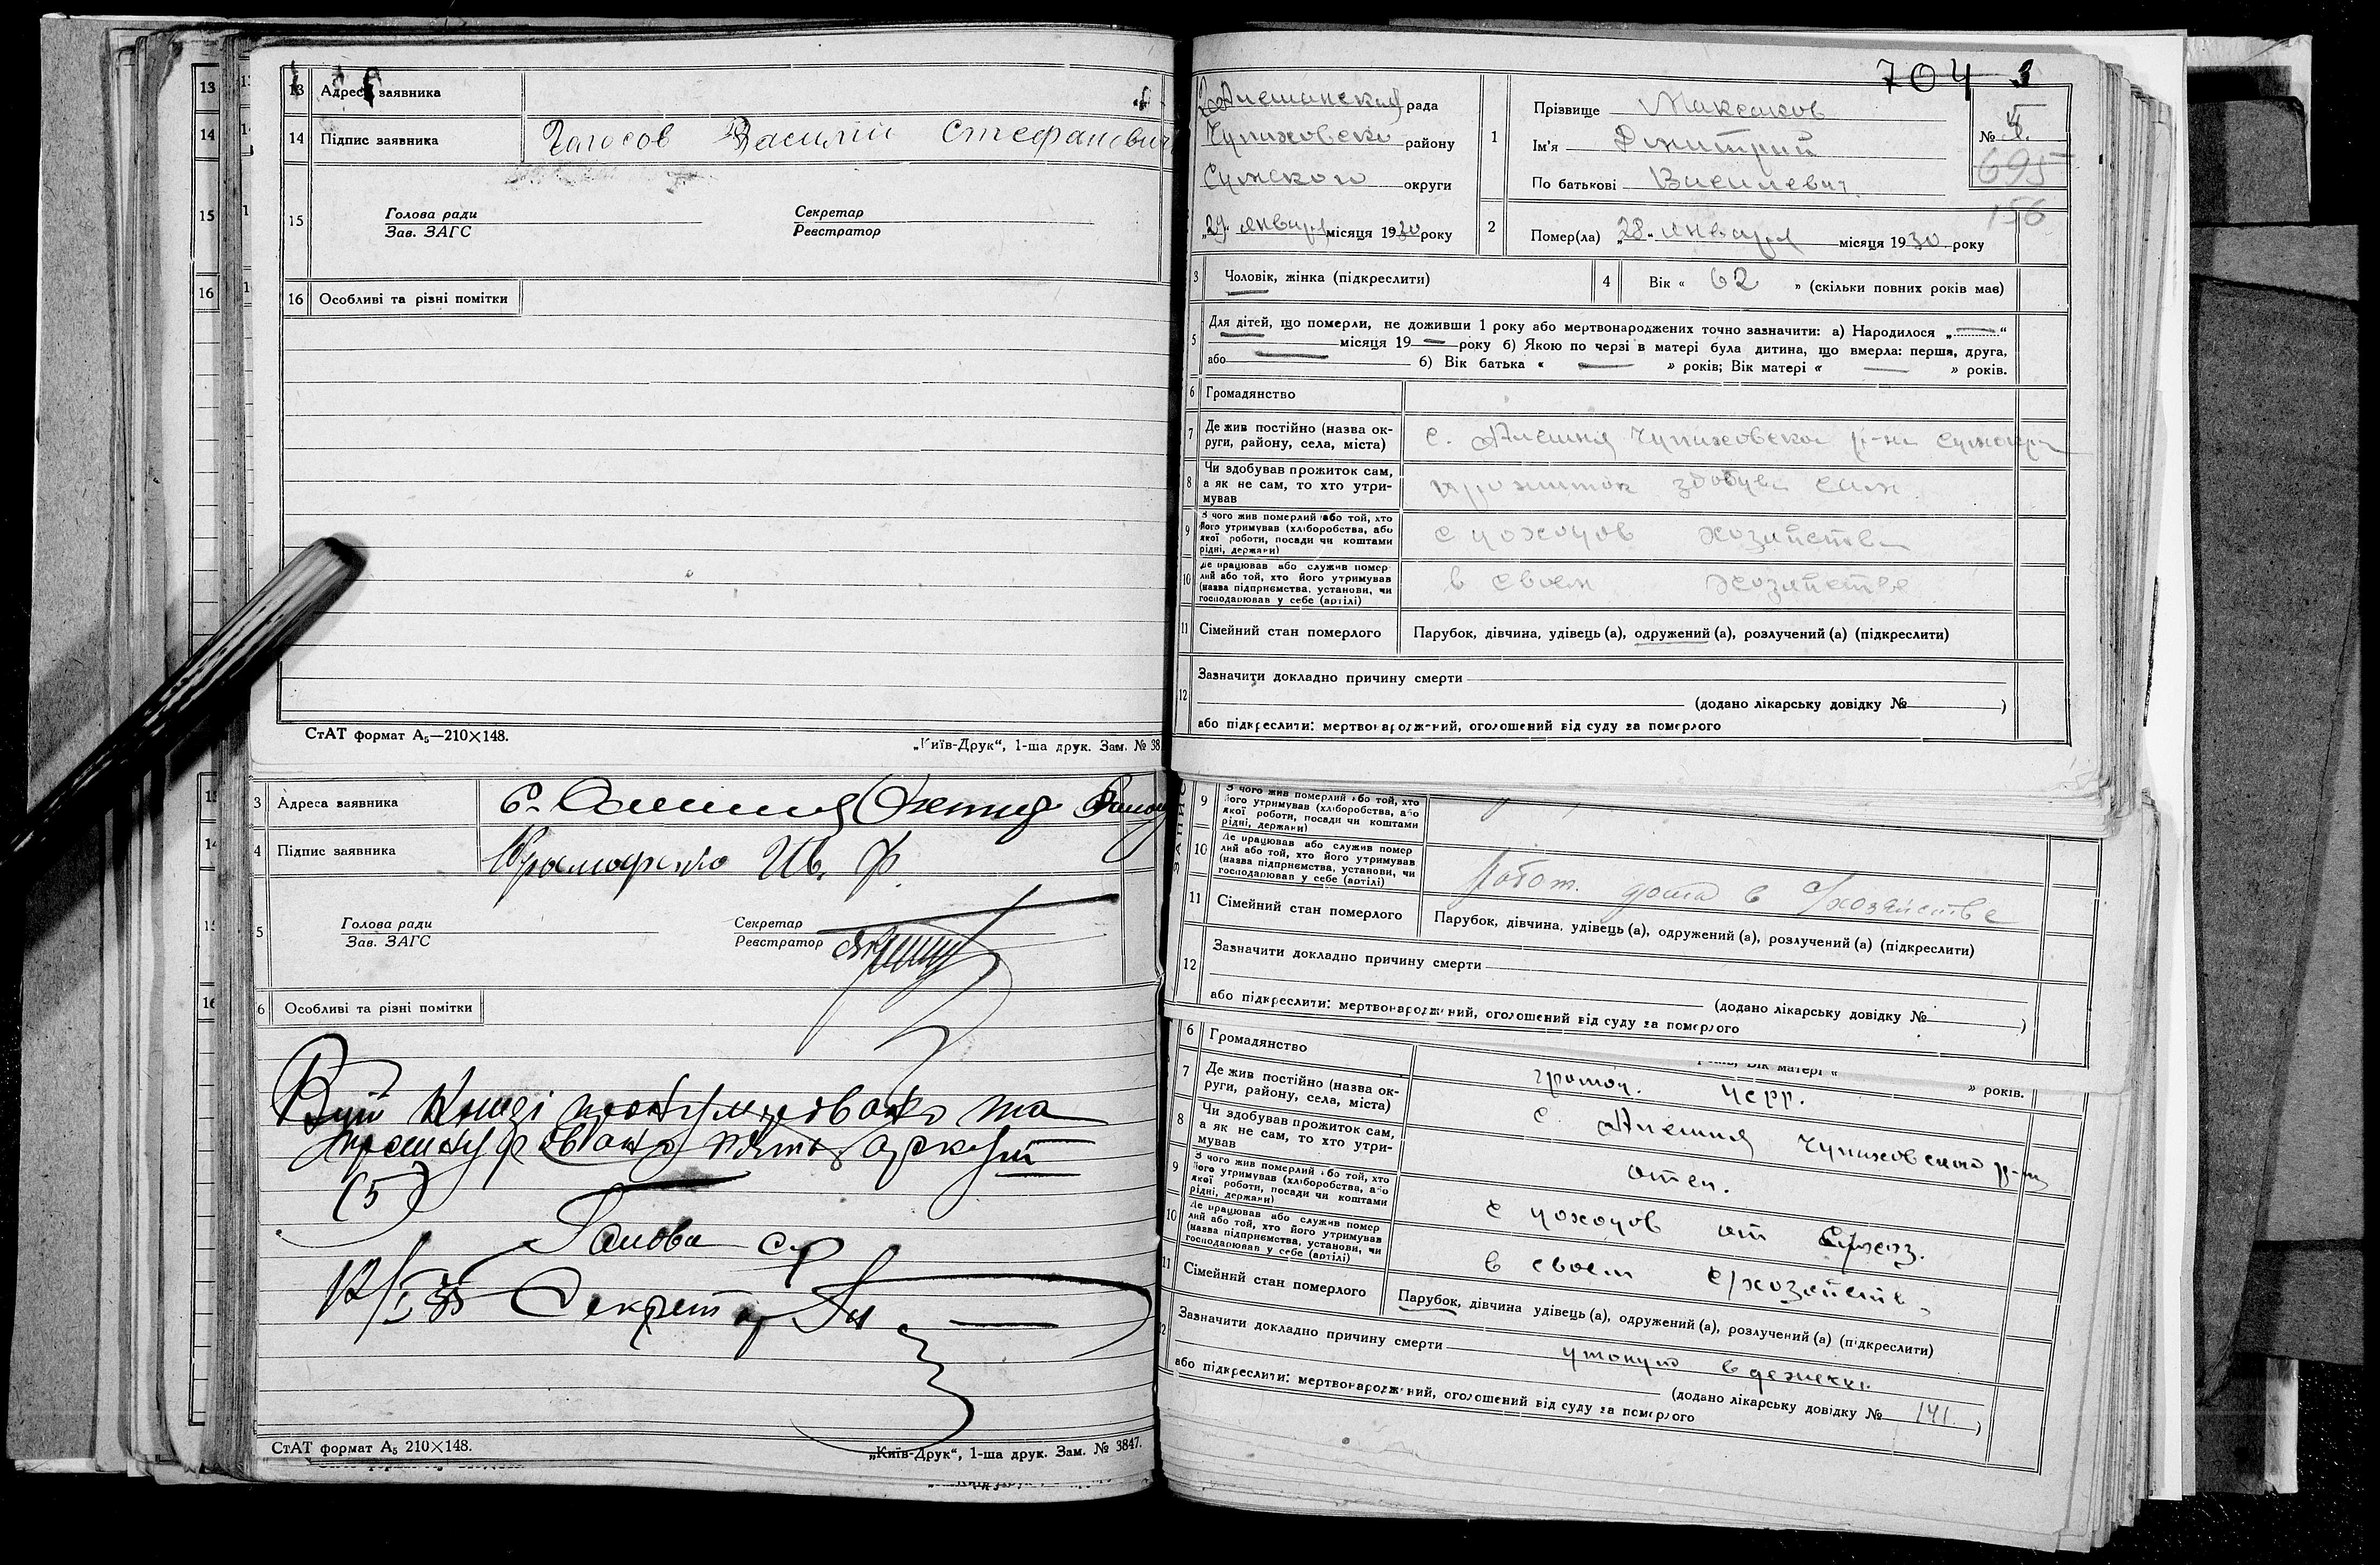 13 Адреса заявника
14 Підпис заявника Василий Стефанович
15 Голова ради Секретар
Зав. ЗАГС Реєстратор
16 Особливі та різні помітки
СтАТ формат А₅—210×148.
„Київ-Друк“, 1-ша друк. Зам. № 38
3 Адреса заявника с.
4 Підпис заявника Ив. Ф.
5 Голова ради Секретар
Зав. ЗАГС Реєстратор
6 Особливі та різні помітки
В цій книзі пронумеровано та
прошнуровано п'ять аркуш
(5)
Голова с/р
Секретар
СтАТ формат А₅ 210×148.
„Київ-Друк“, 1-ша друк. Зам. № 3847.
704 3
рада
району
Сумского округи
„29“ января місяця 1930 року
1 Прізвище Максаков
Ім'я Дмитрий
По батькові Василевич
№
695
156
2 Помер(ла) „28“ января місяця 1930 року
3 Чоловік, жінка (підкреслити)
4 Вік « 62 » (скільки повних років має)
5 Для дітей, що померли, не доживши 1 року або мертвонароджених точно зазначити: а) Народилося „—“
місяця 19— року б) Якою по черзі в матері була дитина, що вмерла: перша, друга,
або — б) Вік батька « — » років; Вік матері « — » років.
6 Громадянство
7 Де жив постійно (назва ок-
руги, району, села, міста) с. Алешня р-на
8 Чи здобував прожиток сам,
а як не сам, то хто утри-
мував прожиток здобув сам
9 З чого жив померлий або той, хто
його утримував (хліборобства, або
якої роботи, посади чи коштами
рідні, держави) с доходов хозяйства
10 Де працював або служив помер-
лий або той, хто його утримував
(назва підприємства, установи, чи
господарював у себе (артілі) в своем хозяйстве
11 Сімейний стан померлого Парубок, дівчина, удівець (а), одружений (а), розлучений (а) (підкреслити)
12 Зазначити докладно причину смерти
(додано лікарську довідку № )
або підкреслити: мертвонароджений, оголошений від суду за померлого
9 З чого жив померлий або той, хто
його утримував (хліборобства, або
якої роботи, посади чи коштами
рідні, держави)
10 Де працював або служив помер
лий або той, хто його утримував
(назва підприємства, установи, чи
господарював у себе (артілі) Работ. дома в с/хозяйстве
11 Сімейний стан померлого Парубок, дівчина, удівець (а), одружений (а), розлучений (а) (підкреслити)
12 Зазначити докладно причину смерти
(додано лікарську довідку № )
або підкреслити: мертвонароджений, оголошений від суду за померлого
Вік матері « » років.
6 Громадянство
7 Де жив постійно (назва ок-
руги, району, села, міста) с. Алешня
8 Чи здобував прожиток сам,
а як не сам, то хто утри-
мував отец.
9 З чого жив померлий або той, хто
його утримував (хліборобства, або
якої роботи, посади чи коштами
рідні, держави) с доходов от с/хоз.
10 Де працював або служив помер
лий або той, хто його утримував
(назва підприємства, установи, чи
господарював у себе (артілі) в своем с/хозяйств
11 Сімейний стан померлого Парубок, дівчина удівець (а), одружений (а), розлучений (а) (підкреслити)
12 Зазначити докладно причину смерти утонул в
(додано лікарську довідку № 141.)
або підкреслити: мертвонароджений, оголошений від суду за померлого